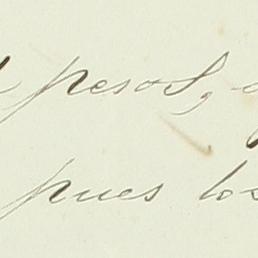 pesos,
pues los